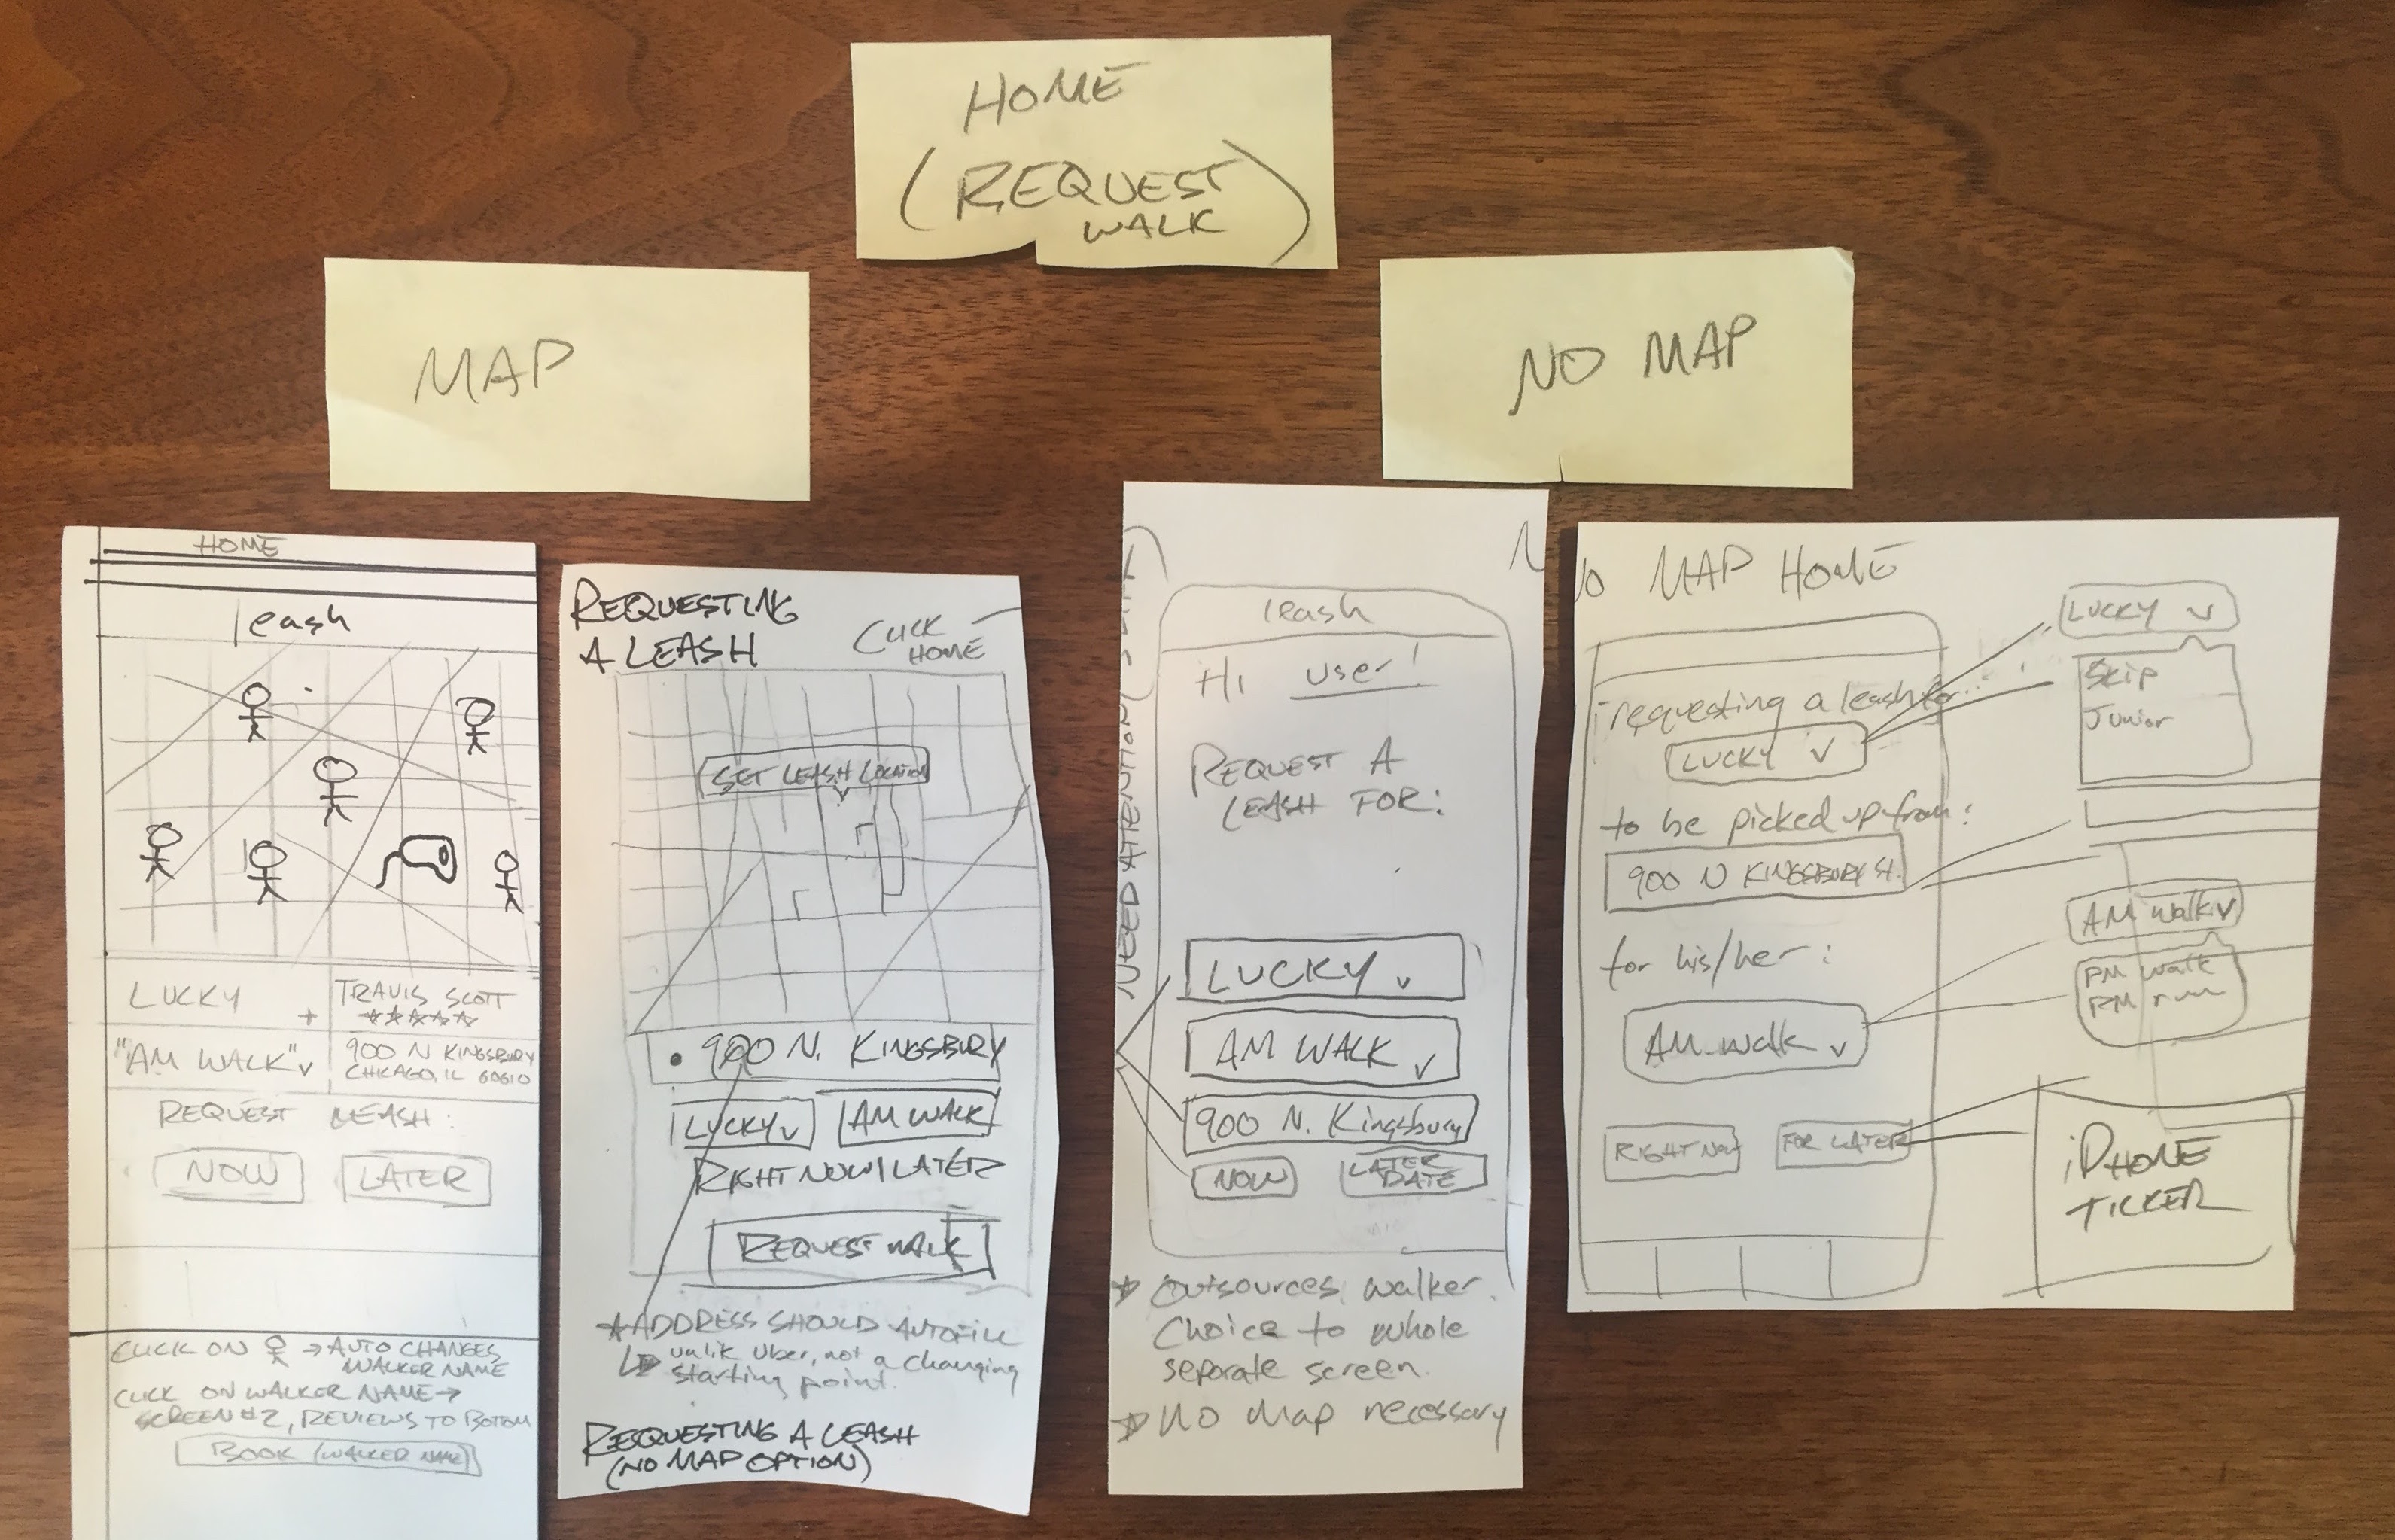 HOME
(REQUEST
WALK)
MAP
NO MAP
HOME
leash
LUCKY
+
TRAVIS SCOTT
☆☆☆☆☆
"AM WALK" v
900 N KINGSBURY
CHICAGO, IL 60610
REQUEST LEASH:
NOW
LATER
CLICK ON → AUTO CHANGES
WALKER NAME
CLICK ON WALKER NAME →
SCREEN #2, REVIEWS TO BOTTOM
BOOK (WALKER NAME)
REQUESTING
A LEASH
CLICK
HOME
SET LEASH LOCATION
900 N. KINGSBURY
LUCKY v
AM WALK
RIGHT NOW/LATER
REQUEST WALK
*ADDRESS SHOULD AUTOFILL
unlik Uber, not a changing
starting point.
REQUESTING A LEASH
(NO MAP OPTION)
NEED ATENTION
leash
Hi user!
REQUEST A
LEASH FOR:
LUCKY v
AM WALK v
900 N. Kingsbury
NOW
LATER
DATE
* Outsources walker
Choice to whole
separate screen.
* No Map necessary
NO MAP HOME
requesting a leash for...
LUCKY v
to be picked up from:
900 N KINGSBURY St.
for his/her:
AM walk v
RIGHT NOW
FOR LATER
LUCKY v
Skip
Junior
AM walk v
PM walk
PM run
iPHONE
TICKER